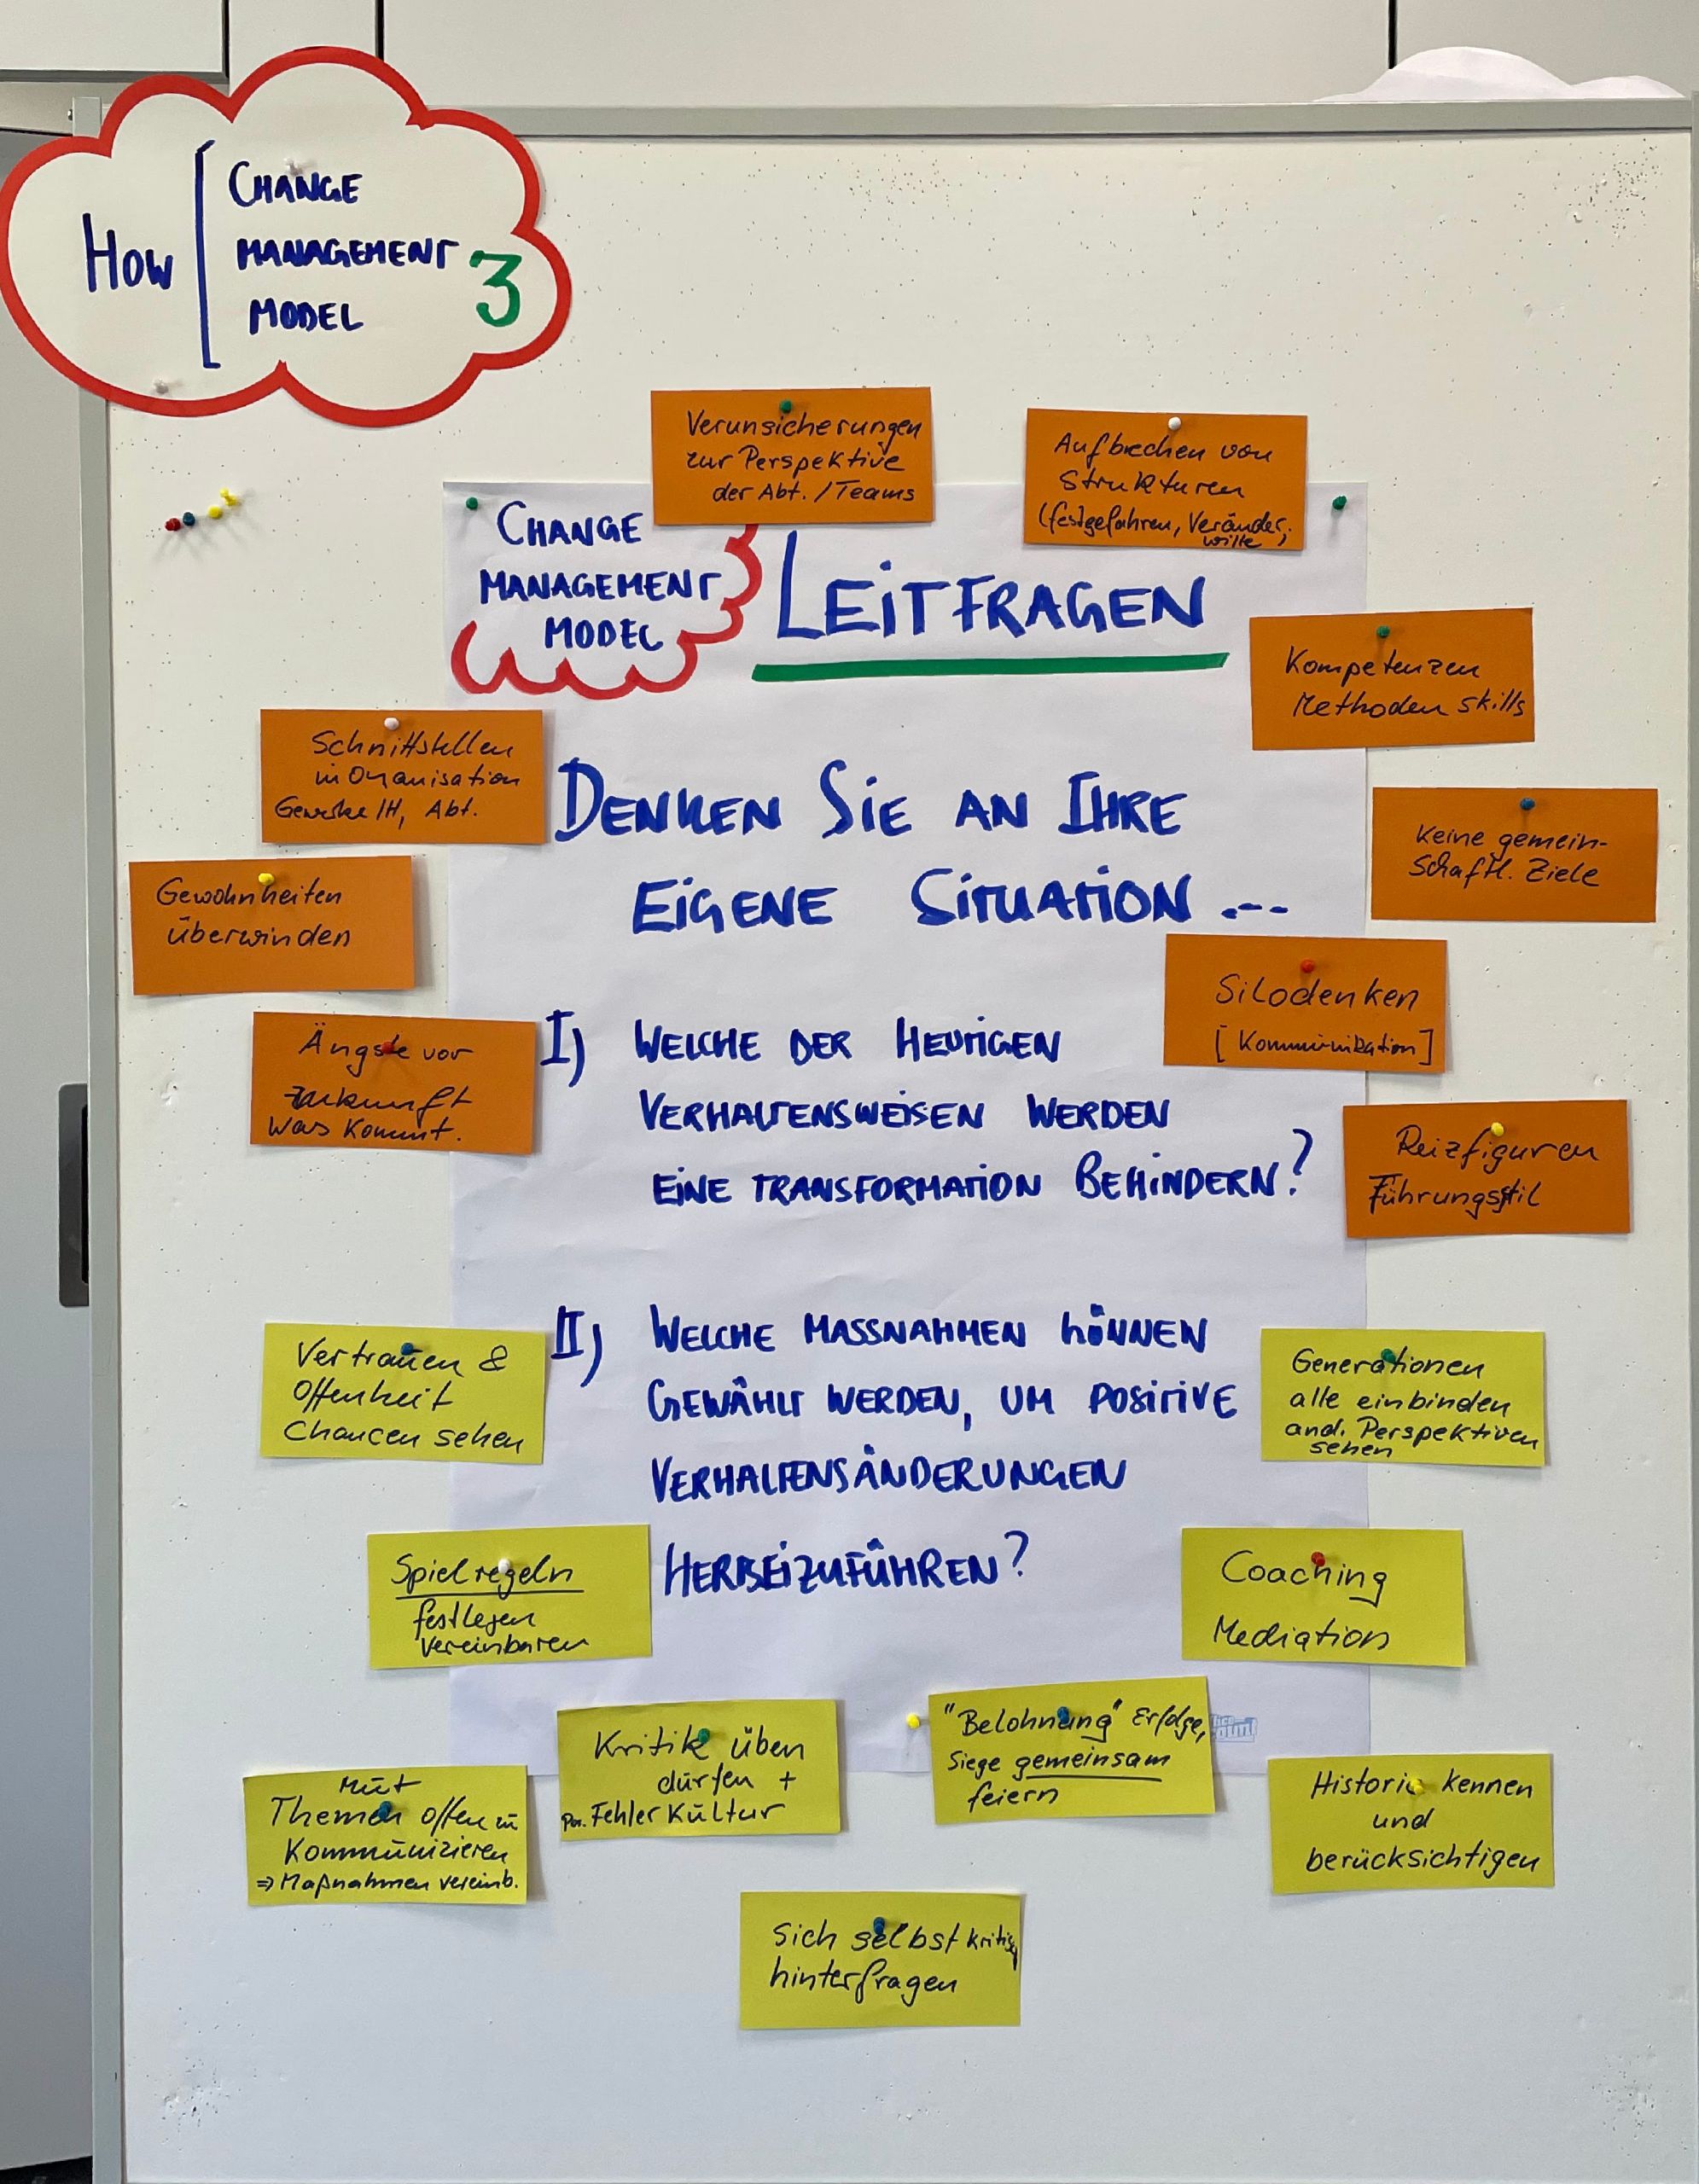 How
CHANGE
MANAGEMENT
MODEL
3
Verunsicherungen
zur Perspektive
der Abt. / Teams
Aufbrechen von
Strukturen
(festgefahren, Veränder.
wille)
CHANGE
MANAGEMENT
MODEL
LEITFRAGEN
Kompetenzen
Methoden skills
Schnittstellen
in Organisation
Gewerke IH, Abt.
DENKEN SIE AN IHRE
EIGENE SITUATION ...
Keine gemein-
schaftl. Ziele
Gewohnheiten
überwinden
Silodenken
[Kommunikation]
Ängste vor
Zukunft
Was kommt.
I) WELCHE DER HEUTIGEN
VERHALTENSWEISEN WERDEN
EINE TRANSFORMATION BEHINDERN?
Reizfiguren
Führungsstil
II) WELCHE MASSNAHMEN KÖNNEN
GEWÄHLT WERDEN, UM POSITIVE
VERHALTENSÄNDERUNGEN
HERBEIZUFÜHREN?
Vertrauen &
Offenheit
Chancen sehen
Generationen
alle einbinden
and. Perspektiven
sehen
Spielregeln
festlegen
vereinbaren
Coaching
Mediation
Kritik üben
dürfen +
pos. Fehler Kultur
"Belohnung" Erfolge,
Siege gemeinsam
feiern
Mut
Themen offen zu
Kommunizieren
⇒ Maßnahmen vereinb.
Historie kennen
und
berücksichtigen
Sich selbst kritisch
hinterfragen